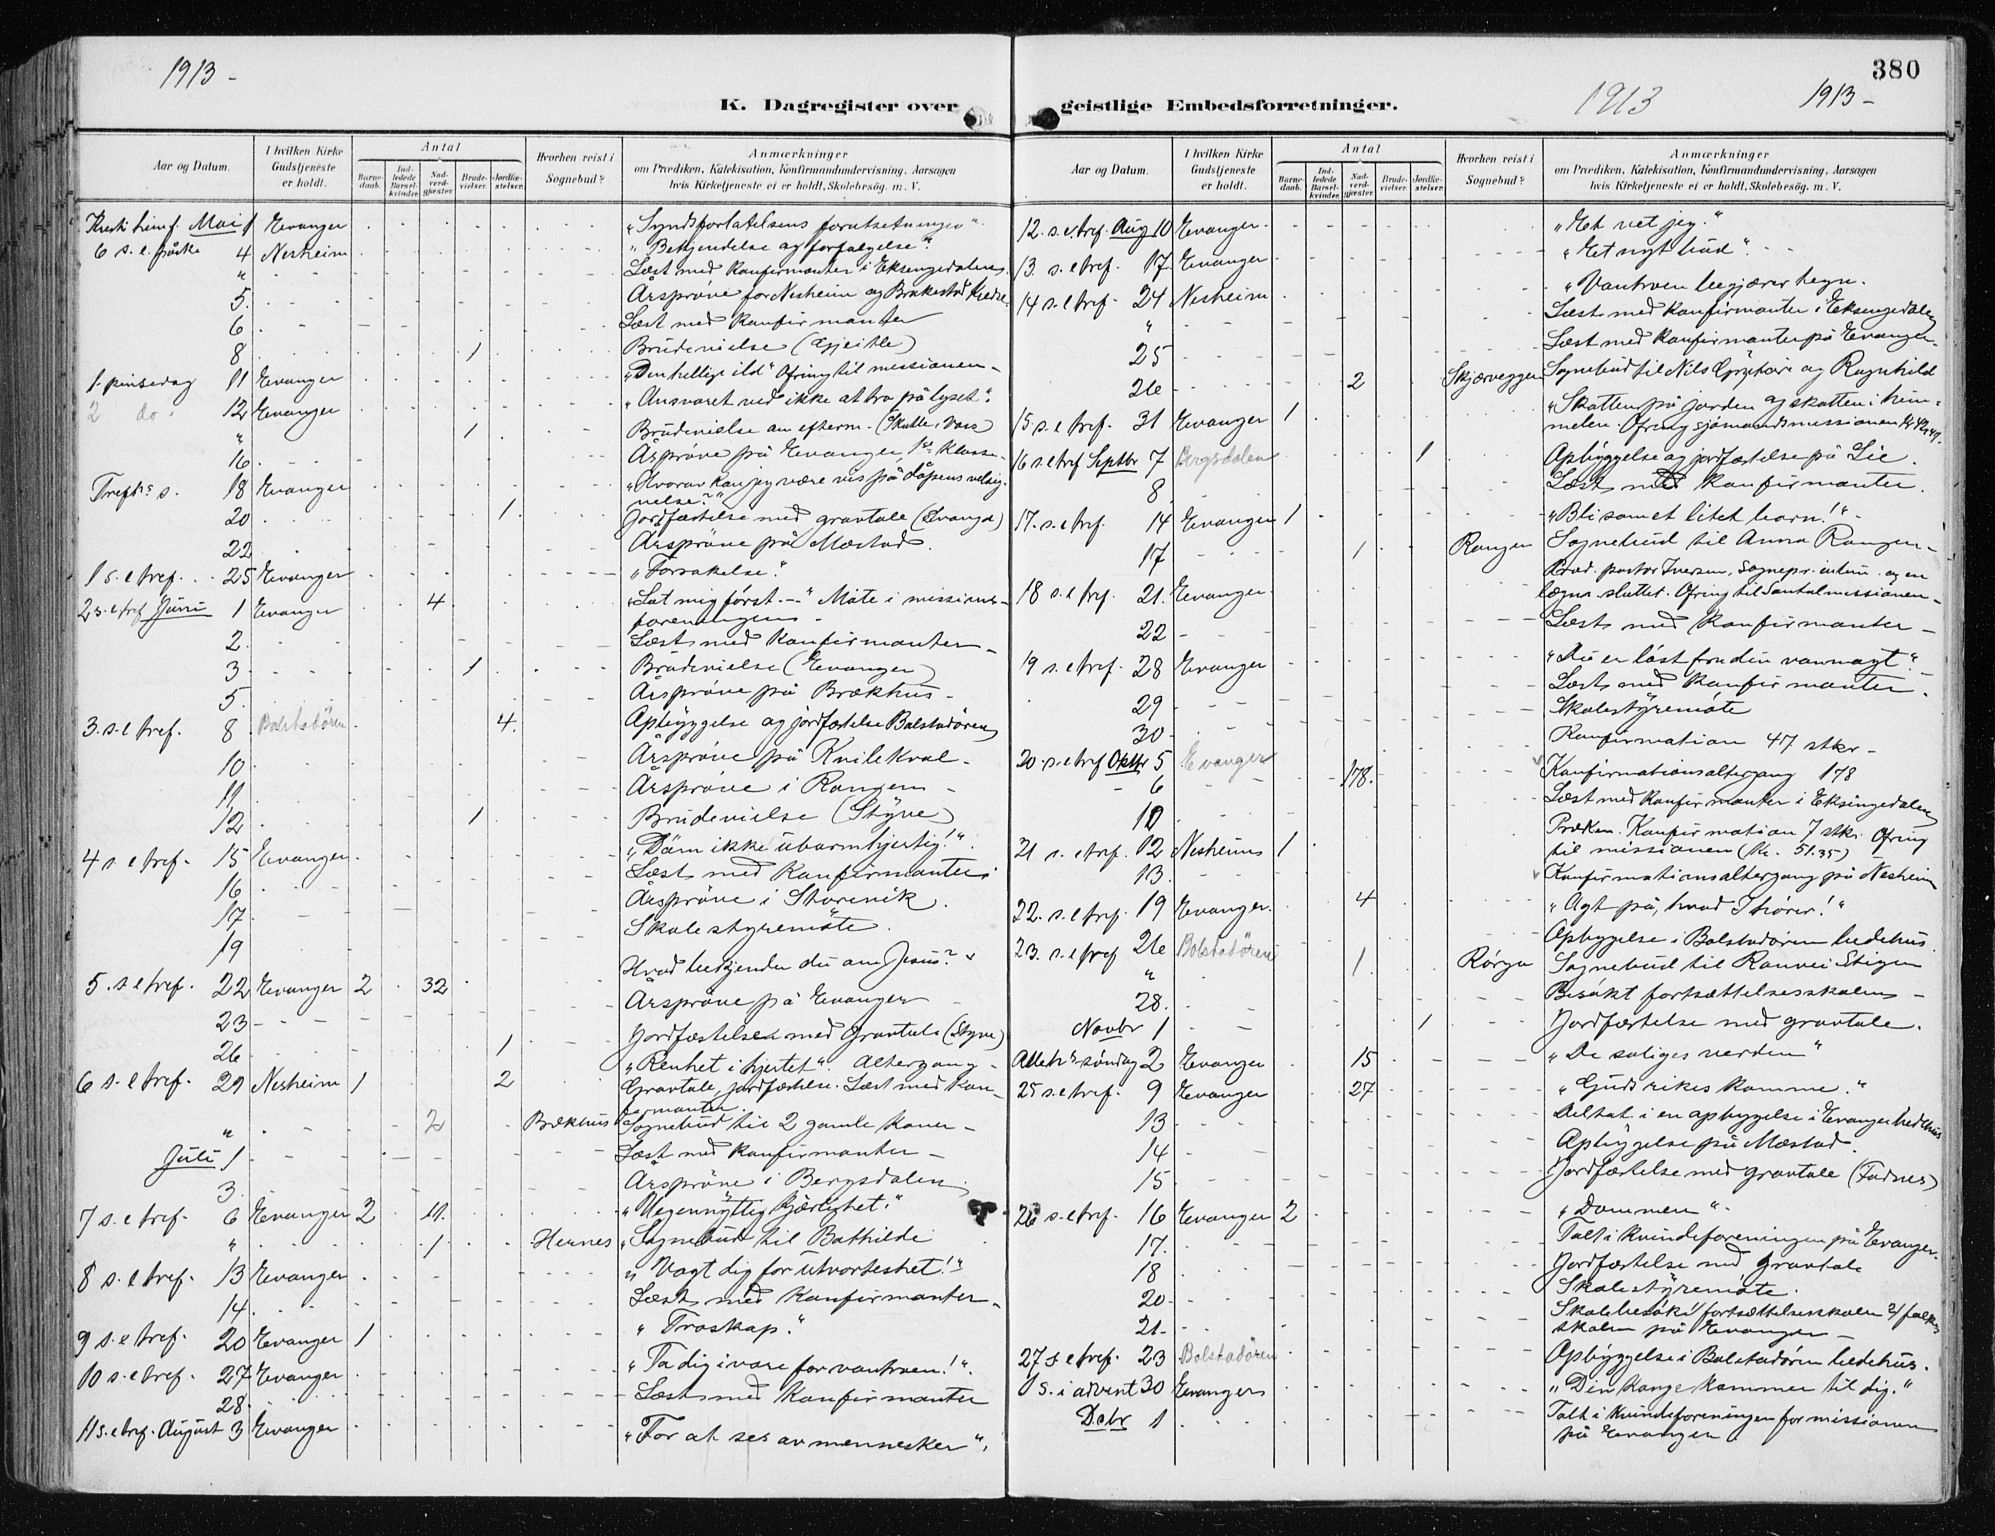 1913 -
380
1913
1913 -
K. Dagregister over geistlige Embedsforretninger.
Aar og Datum. I hvilken Kirke Gudstjeneste er holdt. Antal Barnedaab. Indledede Barselkvinder. Nadverdgjæster. Brudevielser. Jordfæstelser. Hvorhen reist i Sognebud? Anmærkninger om Prædiken, Katekisation, Konfirmandundervisning, Aarsagen hvis Kirketjeneste ei er holdt, Skolebesøg. m. V.
Kristi himf. Mai 1 Evanger "Syndsforlatelsens forutsetninger".
6 s. e. påske 4 Nesheim "Bekjendelse og forfølgelse".
" Læst med konfirmanter i Eksingedalen.
5. Årsprøve for Nesheim og Brakestad kredse.
6 Læst med konfirmanter
8 1 Brudevielse (Gjeitle)
1. pinsedag 11 Evanger "Den hellige ild" Ofring til missionen -
2 do. 12 Evanger "Ansvaret ved ikke at tro på lyset".
" 1 Brudevielse om efterm. (Skutle, Voss)
16. Årsprøve på Evanger 1ste klasse.
Trefhs s. 18 Evanger "Hvorav kan jeg være vis på dåpens velsignelse?"
20 1. Jordfæstelse med gravtale (Evanger)
22 Årsprøve på Mæstad.
1 s. e tref. 25 Evanger "Forsakelse".
2 s. e tref Juni 1 Evanger 4 "Lat mig først -" Møte i missionsforeningen -
2. Læst med konfirmanter -
3 1 Brudevielse (Evanger)
5. Årsprøve på Brækhus -
3. s. e tref. 8 Bolstadøren 4. Opbyggelse og jordfæstelse Bolstadøren
10 Årsprøve på Kvilekval -
11 Årsprøve i Rongen -
12 1 Brudevielse (Styve)
4 s. e tref. 15 Evanger "Døm ikke ubarmhjertig!".
16 Læst med konfirmanter.
17 Årsprøve i Storevik.
19 Skolestyremøte.
5. s. e tref. 22 Evanger 2 32 Hvad bekjender du om Jesus?
23 - Årsprøve på Evanger -
26 1 Jordfæstelse med gravtale (Styve)
6 s. e tref. 29 Nesheim 1 2 "Renhet i hjertet". Altergang -
Gravtale, jordfæstelse. Læst med konfirmanter.
" 2 Brækhus Sognebud til 2 gamle koner -
Juli 1 Læst med konfirmanter -
3. Årsprøve i Bergsdalen
7 s. e tref. 6 Evanger 2 11. "Uegennyttig kjærlighet."
" 1 Hernes Sognebud til Bothilde
8 s. e tref. 13 Evanger "Vogt dig for utvorteshet!"
14. Læst med konfirmanter -
9 s. e tref. 20 Evanger 1 "Troskap."
10 s. e tref. 27 Evanger "Ta dig ivare for vantroen!".
28. Læst med konfirmanter
11 s. e tref. August 3 Evanger "For at sees av mennesker".
Aar og Datum. I hvilken Kirke Gudstjeneste er holdt. Antal Barnedaab. Indledede Barselkvinder. Nadverdgjæster. Brudevielser. Jordfæstelser. Hvorhen reist i Sognebud? Anmærkninger om Prædiken, Katekisation, Konfirmandundervisning, Aarsagen hvis Kirketjeneste ei er holdt, Skolebesøg. m. V.
12. s. e. tref. Aug 10 Evanger "Et vet jeg."
13. s. e tref. 17. Evanger "Et nyt bud".
14 s. e tref. 24 Nesheim "Vantroen begjærer tegn.
" Læst med konfirmanter i Eksingedalen
25 Læst med konfirmanter på Evanger
26 2 Skjerveggen Sognebud til Nils og Ragnhild
15 s. e tref. 31 Evanger 1 "Skatten på jorden og skatten i himmelen. Ofring sjømandsmissionen
16 s. e tref Septbr 7 Bergsdalen 1 Opbyggelse og jordfæstelse på Lie.
8. Læst med konfirmanter.
17. s. e tref. 14 Evanger 1 "Bli som et litet barn!"
17 1 Rongen Sognebud til Anna Rongen -
18 s. e tref. 21. Evanger Præd. pastor Iversen, Sognepr. og en lægm. sluttet. Ofring til Santalmissionen -
22 Læst med konfirmanter -
19 s. e tref. 28 Evanger "Du er løst fra din vanmagt".
29 Læst med konfirmanter.
30 Skolestyremøte
20 s. e tref Oktbr 5 Evanger Konfirmation 47 stkr -
6 178. Konfirmationsaltergang 178
10 Læst med konfirmanter i Eksingedalen
21 s. e tref. 12 Nesheim 1 Præken. Konfirmation 7 stkr. Ofring til missionen (Kr. 51.35)
13. Konfirmationsaltergang på Nesheim
22. s. e tref. 19 Evanger. 4 "Agt på, hvad I hører!"
23. s. e tref 26 Bolstadøren Opbygelse i Bolstadøren bedehus.
" 1 Rørge Sognebud til Ranvei Stigen
28. Besøkt fortsættelsesskolen -
Novbr 1 1 Jordfæstelse med gravtale.
Alleh's søndag 2 Evanger 15 "De saliges verden"
25 s. e tref. 9 Evanger 27 "Guds rikes komme."
13 Deltat i en opbyggelse i Evanger bedehus
14 Opbyggelse på Mæstad.
15 Jordfæstelse med gravtale (Fadnes)
26 s. e tref. 16 Evanger 2 "Dommen".
17. Talt i kvindeforeningen på Evanger.
18 Jordfæstelse med gravtale
20 Skolestyremøte.
21. Skolebesøk i fortsættelsesskolen og folkeskolen på Evanger -
27 s. e tref. 23 Bolstadøren Opbyggelse i Bolstadøren bedehus.
1 s. i advent 30 Evanger "Din konge kommer til dig."
Dcbr 1 Talt i kvindeforeningen for missionen på Evanger